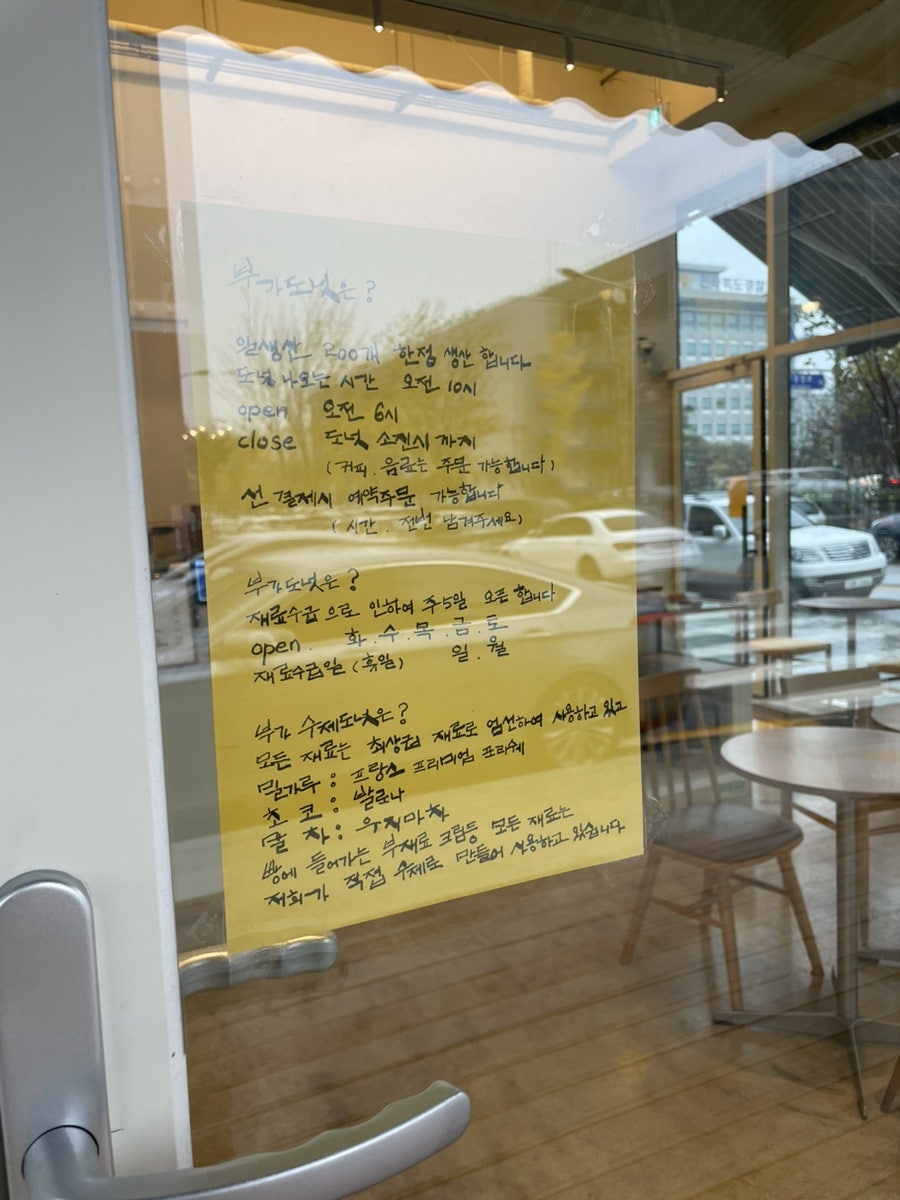 부가도넛은?
일생산 200개 한정 생산 합니다.
도넛 나오는 시간 오전 10시
open 오전 6시
close 도넛 소진시 까지
(커피. 음료는 주문 가능합니다)
선 결제시 예약주문 가능합니다
(시간. 전번 남겨주세요)
부가도넛은?
재료수급 으로 인하여 주5일 오픈 합니다
open. 화.수.목.금.토
재료수급일(휴일) 일.월
부가 수제도넛은?
모든 재료는 최상급 재료로 엄선하여 사용하고 있고
밀가루 : 프랑스 프리미엄 포리쉐
초코 : 발로나
말차 : 우지마차
빵에 들어가는 부재료 크림등 모든 재료는
저희가 직접 수제로 만들어 사용하고 있습니다